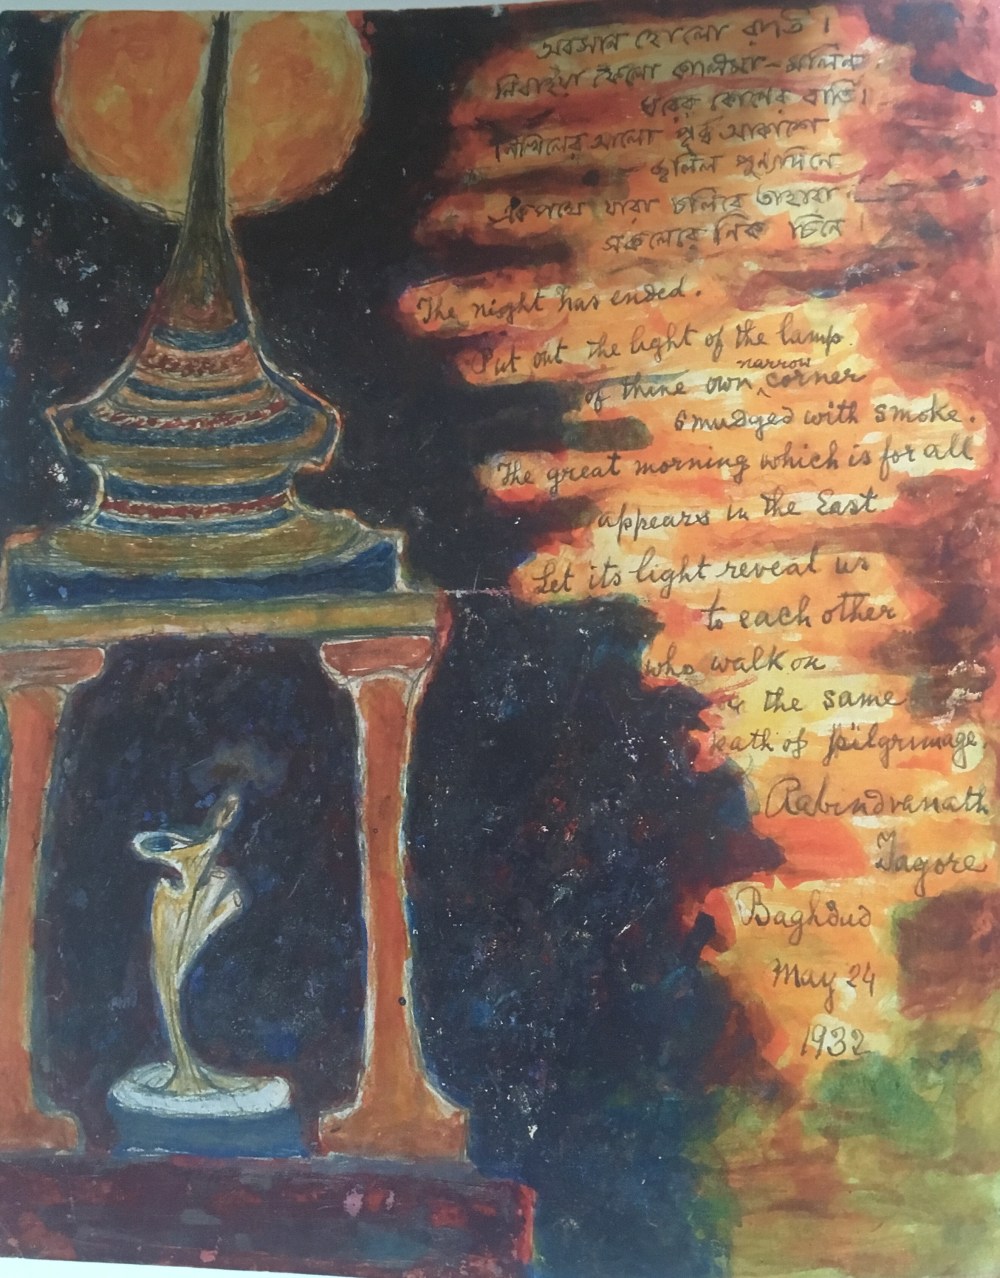 অবসান হোলো রাতি।
নিবাইয়া ফেলো কালিমা-মলিন
ঘরের কোণের বাতি।
নিখিলের আলো পূর্ব্ব আকাশে
জ্বলিল পুণ্যদিনে
একপথে যারা চলিবে তাহারা
সকলেরে নিক্ চিনে।
The night has ended.
Put out the light of the lamp
of thine own narrow corner
smudged with smoke.
The great morning which is for all
appears in the East
Let its light reveal us
to each other
who walk on
the same
path of pilgrimage.
Rabindranath
Tagore
Baghdad
May 24
1932